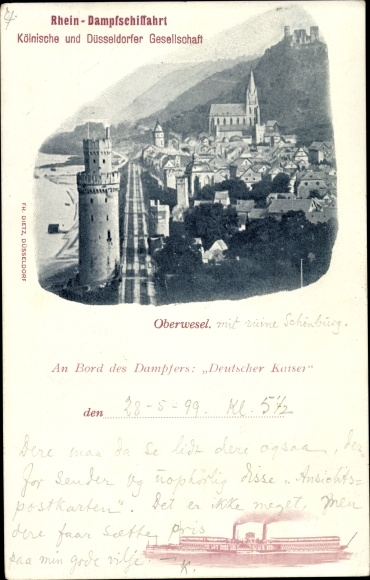 4.
Rhein-Dampfschiffahrt
Kölnische und Düsseldorfer Gesellschaft
FR. DIETZ, DÜSSELDORF
Oberwesel. mit ruine Schönburg.
An Bord des Dampfers: „Deutscher Kaiser“
den 28-5-99. Kl. 5½
Dere maa da se lidt dere ogsaa,
for sender jeg uophørlig disse „Ansichts-
postkarten“. Det er ikke meget, men
dere faar sætte pris
paa min gode vilje.
K.